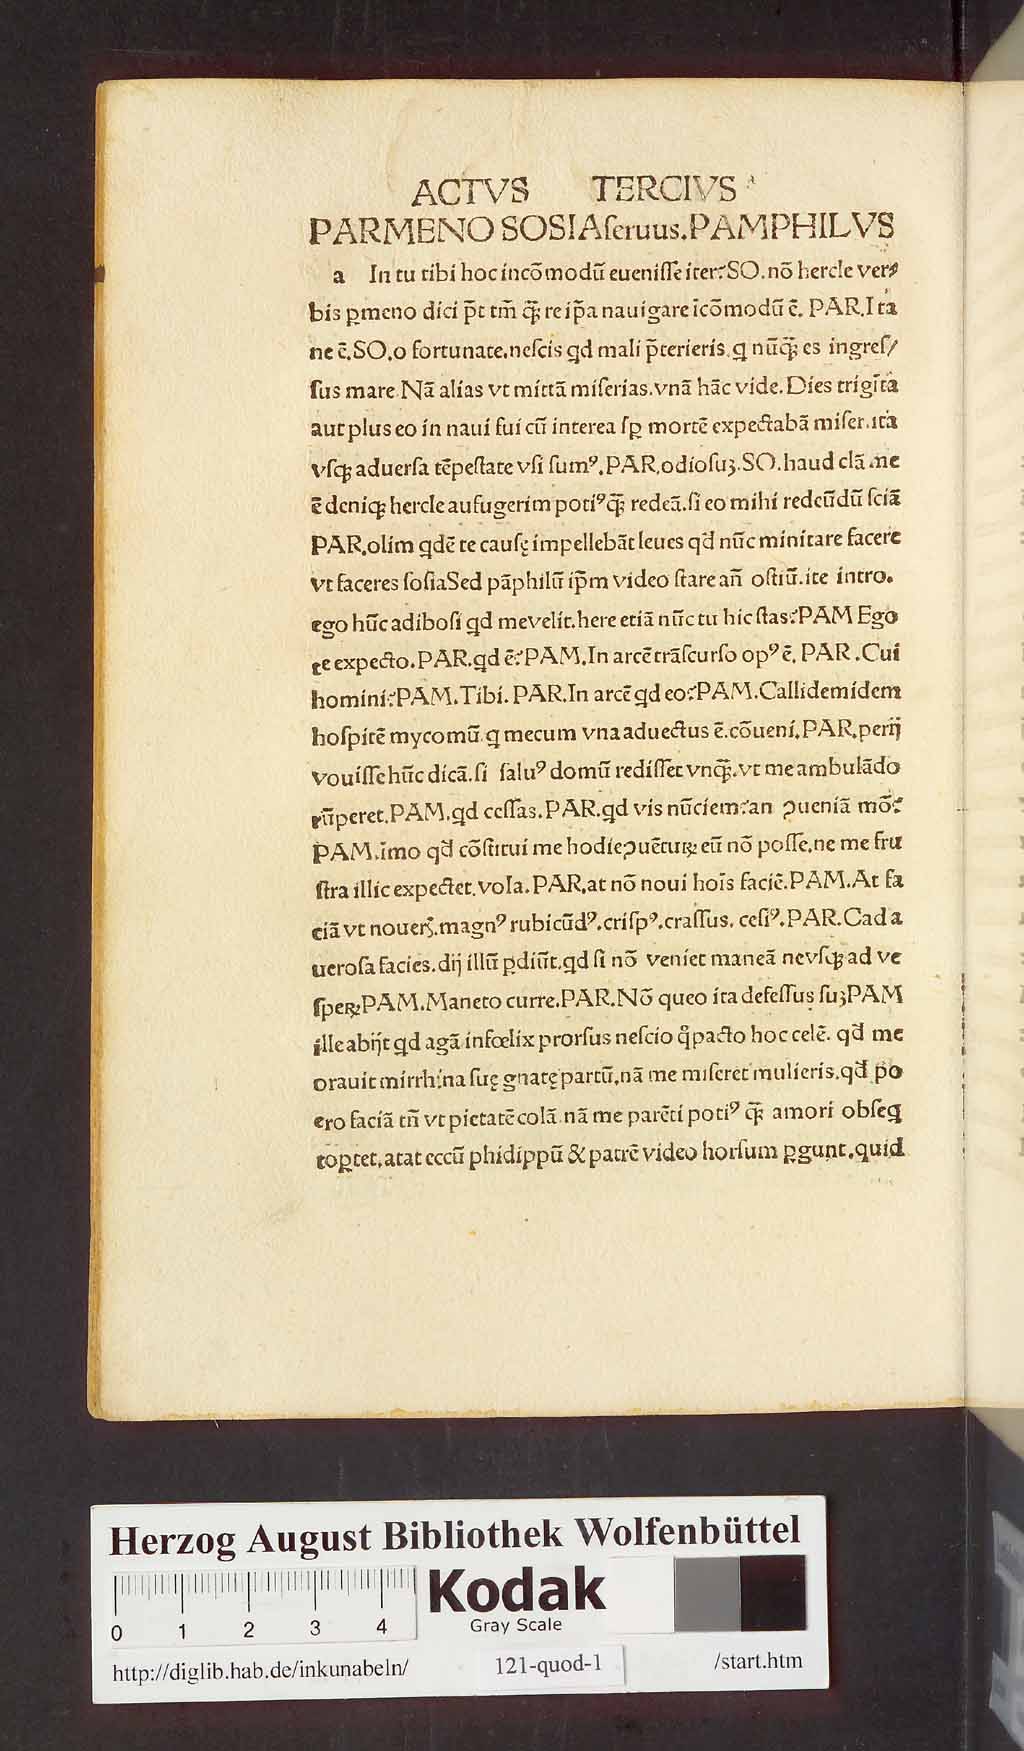 ACTVS TERCIVS
PARMENO SOSIAſeruus.PAMPHILVS
a In tu tibi hoc incōmodū eueniſſe iter? SO. nō hercle ver⸗
bis ꝑmeno dici p̄t tm̄ qꝫ̄ re ip̄a nauigare īcōmodū ē. PAR. Ita
ne ē. SO. o fortunate. neſcis qd mali p̄terieris. q nūqꝫ̄ es ingreſ/
ſus mare. Nā alias vt mittā miſerias. vnā hāc vide. Dies trigīta
aut plus eo in naui fui cū interea ſꝑ mortē expectabā miſer. ita
vſqꝫ aduerſa tēpeſtate vſi ſumꝰ. PAR. odioſuꝫ. SO. haud clā me
ē deniqꝫ hercle aufugerim potiꝰ qꝫ̄ redeā. ſi eo mihi redeūdū ſciā
PAR. olim qdē te cauſę impellebāt leues qd̄ nūc minitare facere
vt faceres ſoſia Sed pāphilū ip̄m video ſtare an̄ oſtiū. ite intro.
ego hūc adibo ſi qd me velit. here etiā nūc tu hic ſtas? PAM Ego
te expecto. PAR. qd ē? PAM. In arcē trāſcurſo opꝰ ē. PAR. Cui
homini? PAM. Tibi. PAR. In arcē qd eo? PAM. Callidemidem
hoſpitē mycomū. q mecum vna aduectus ē. cōueni. PAR. perij
vouiſſe hūc dicā. ſi ſaluꝰ domū rediſſet vnqꝫ̄. vt me ambulādo
rūperet. PAM. qd ceſſas. PAR. qd vis nūciem? an ꝯueniā mō?
PAM. īmo qd̄ cōſtitui me hodie ꝯuētuꝝ eū nō poſſe. ne me fru
ſtra illic expectet. vola. PAR. at nō noui hoīs faciē. PAM. At fa
ciā vt nouerꝭ. magnꝰ rubicūdꝰ. criſpꝰ. craſſus. ceſiꝰ. PAR. Cada
ueroſa facies. dij illū ꝑdiūt. qd ſi nō veniet maneā ne vſqꝫ ad ve
ſpeꝝ? PAM. Maneto curre. PAR. Nō queo ita defeſſus ſuꝫ PAM
ille abijt qd agā infœlix prorſus neſcio qͦ pacto hoc celē. qd̄ me
orauit mirrhina ſuę gnatę partū. nā me miſeret mulieris. qd̄ po
ero faciā tn̄ vt pietatē colā. nā me parēti potiꝰ qꝫ̄ amori obſeq
toꝑtet. atat eccū phidippū & patrē video horſum ꝑgunt. quid
Herzog August Bibliothek Wolfenbüttel
Kodak
Gray Scale
0 1 2 3 4
http://diglib.hab.de/inkunabeln/ 121-quod-1 /start.htm